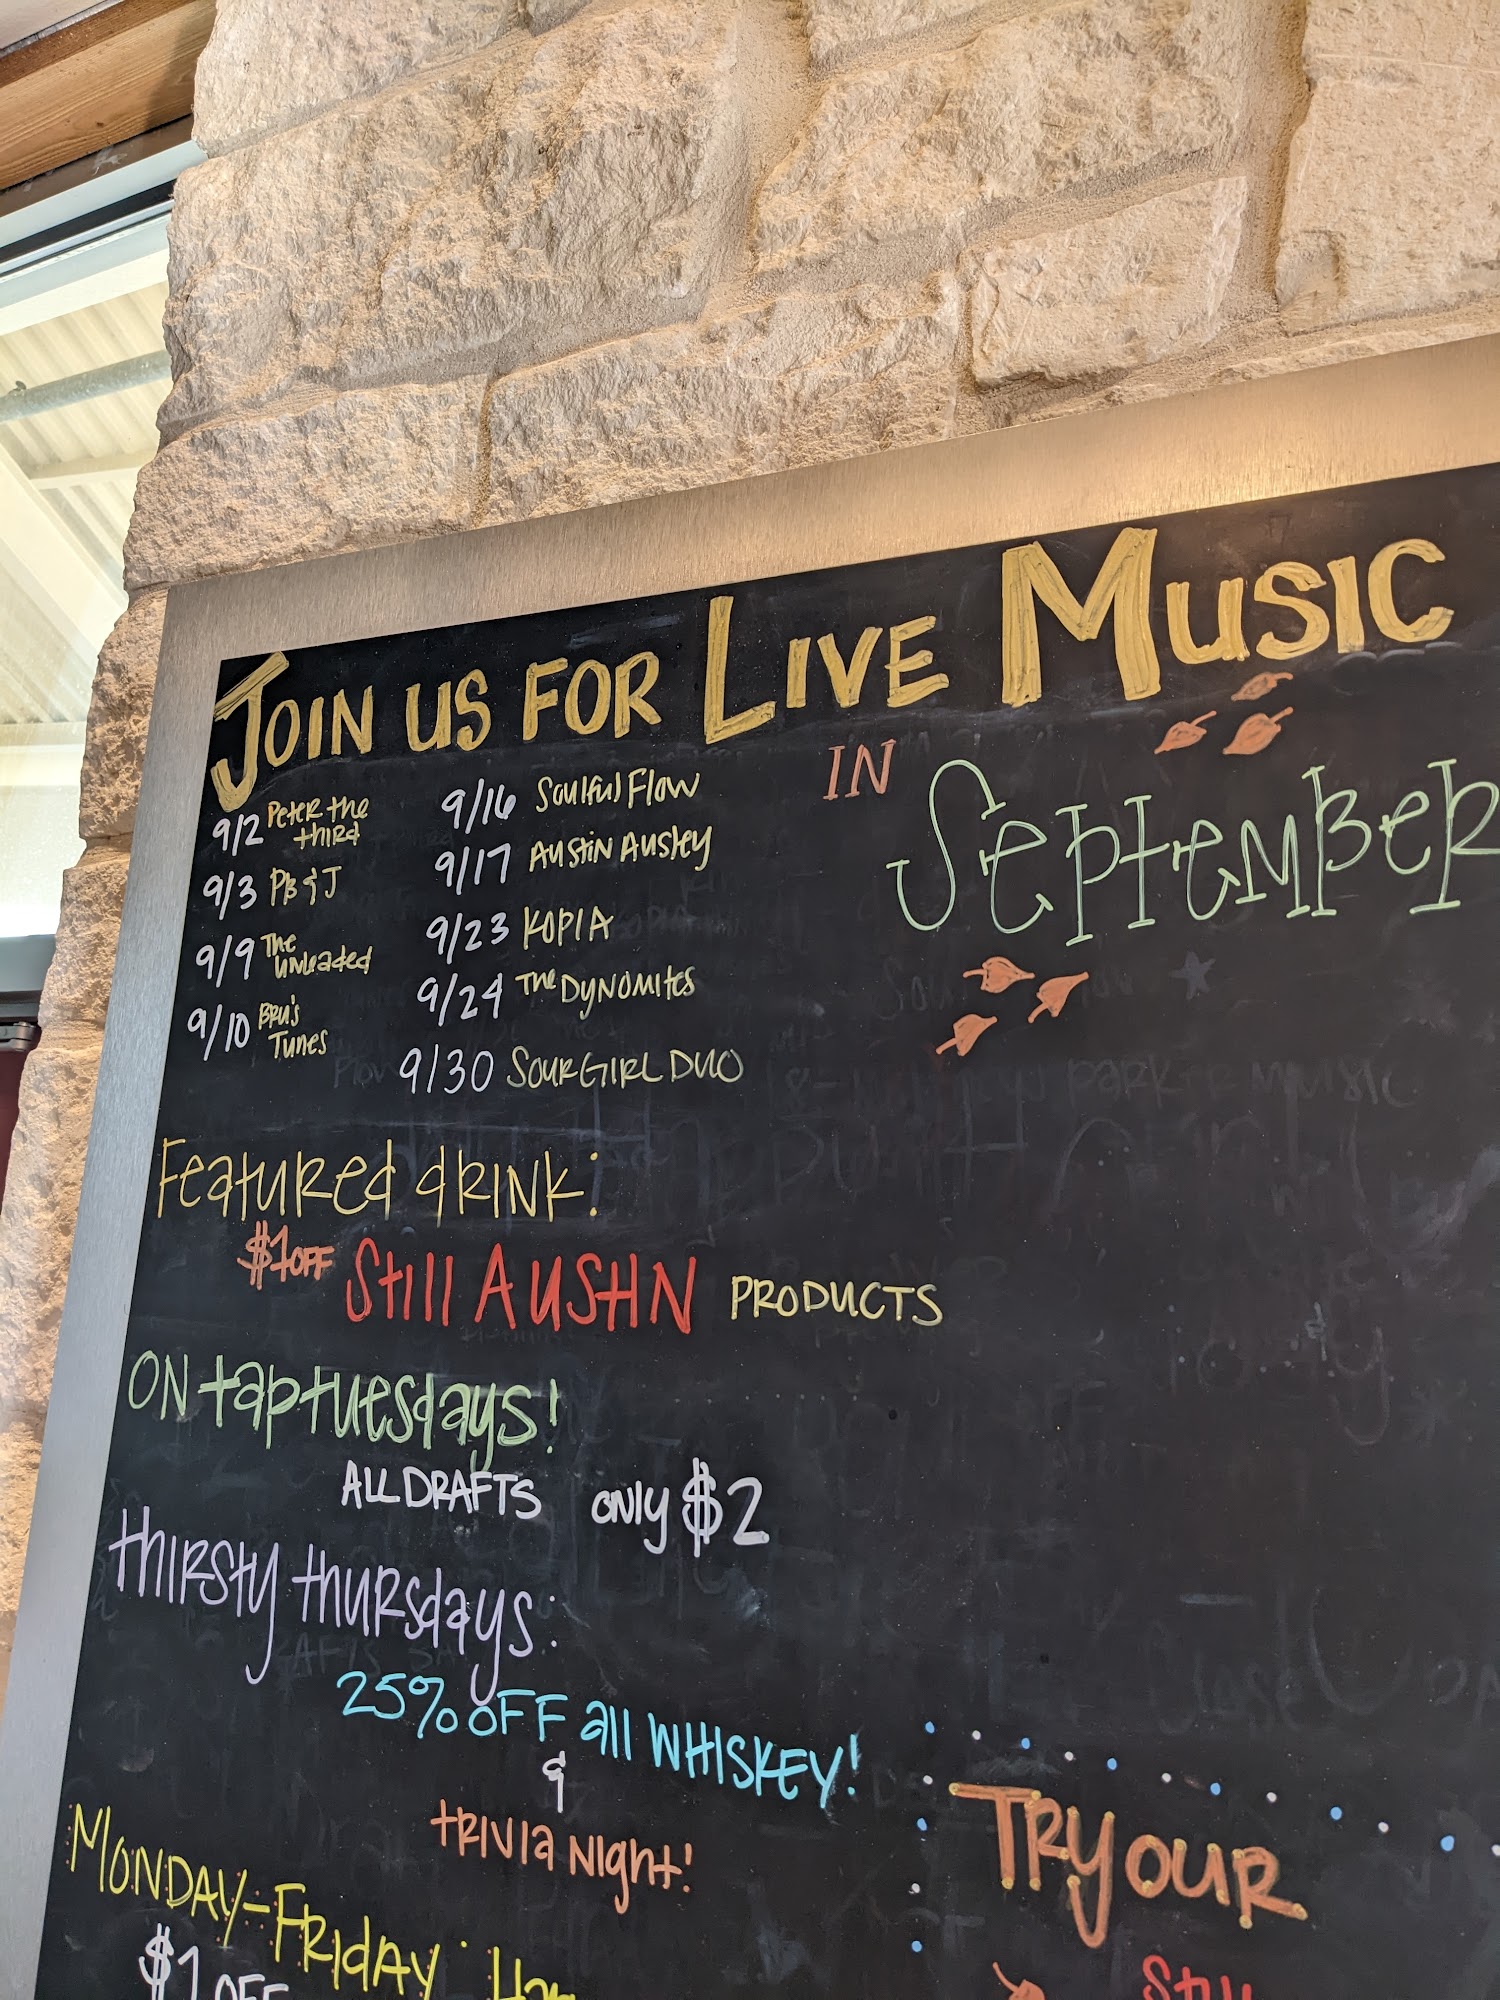 JOIN US FOR LIVE MUSIC
IN SEPTEMBER
9/2 Peter the third
9/3 PB & J
9/9 The Unleaded
9/10 Bru's Tunes
9/16 Soulful Flow
9/17 Austin Ausley
9/23 KOPIA
9/24 The DYNOMITES
9/30 SOURGIRL DUO
Featured drink:
$1 OFF Still AUSTIN PRODUCTS
ON tap tuesdays!
ALL DRAFTS only $2
thirsty thursdays:
25% OFF all WHISKEY!
&
TRIVIA Night!
MONDAY-FRIDAY
$1 OFF
TRY OUR
Still